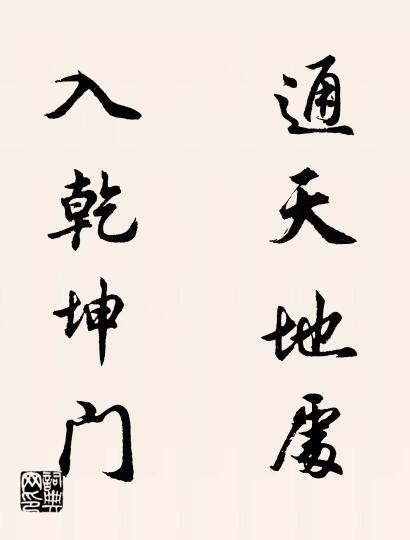 通天地處
入乾坤门
詞典网印